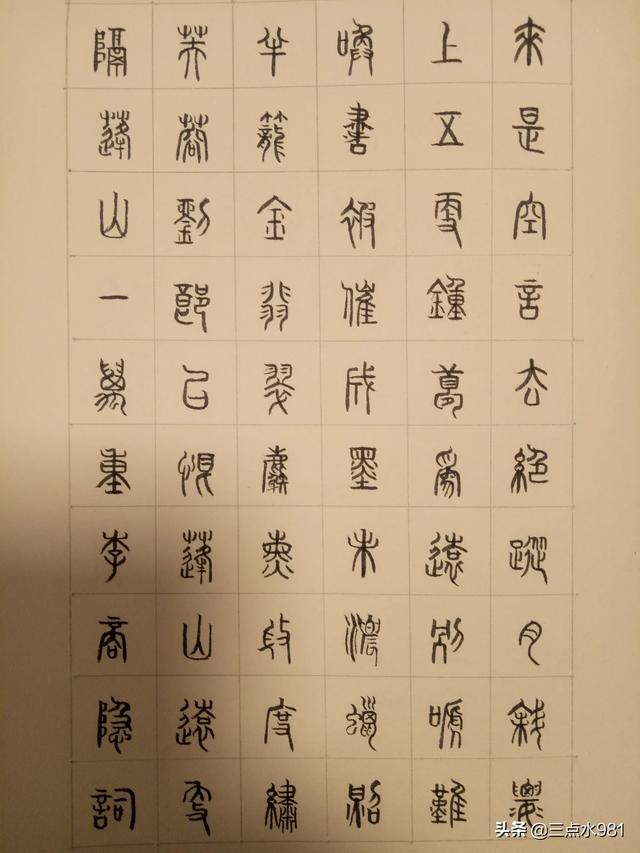 來是空言去絕蹤月斜樓
上五更鐘夢爲遠別嗁難
喚書被催成墨未濃蠟照
半籠金翡翠麝熏微度繡
芙蓉劉郎已恨蓬山遠更
隔蓬山一萬重李商隱詞
头条 @三点水981